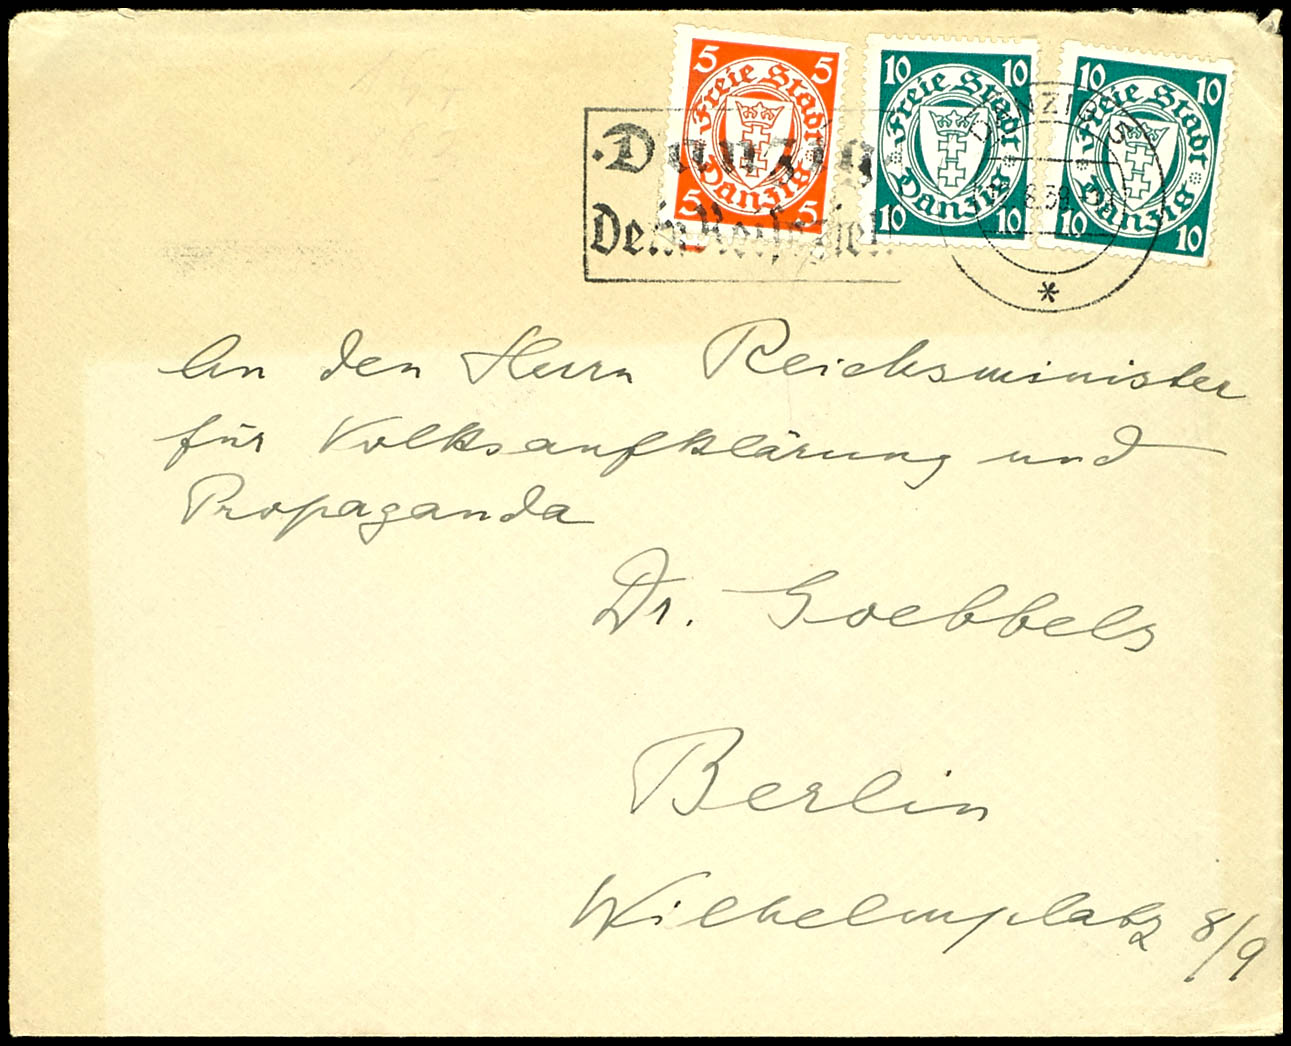 5 5
Freie Stadt
Danzig
5 5
10 10
Freie Stadt
Danzig
10 10
10 10
Freie Stadt
Danzig
10 10
Danzig
Dein Reiseziel
DANZIG 5
6.39
*
An den Herrn Reichsminister
für Volksaufklärung und
Propaganda
Dr. Goebbels
Berlin
Wilhelmplatz 8/9